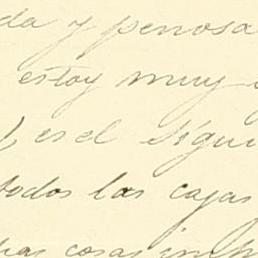 da y penosa
estoy muy
es el sigui
todos las cajas
cosas